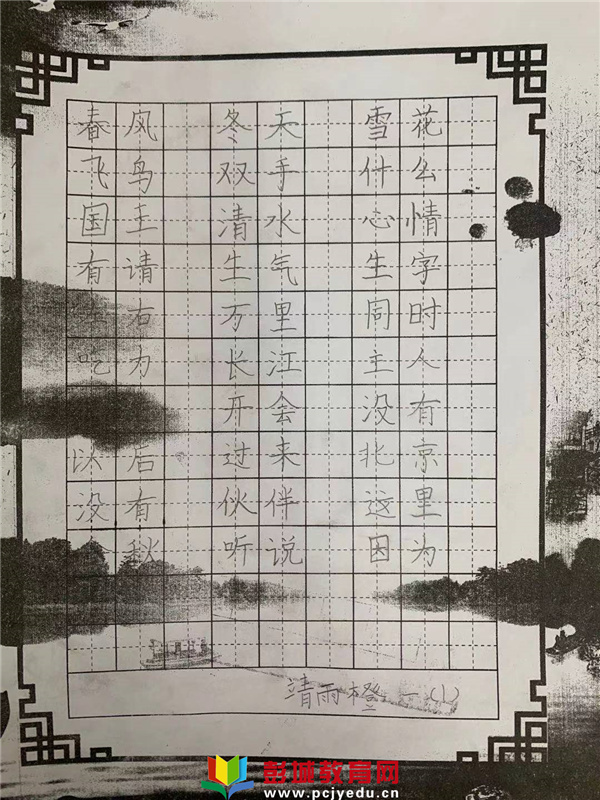 春风 冬天 雪花
飞鸟 双手 什么
国王 清水 心情
有请 生气 生字
右 万里 同时
吃 长江 主人
开会 没有
以后 过来 北京
没有 伙伴 这里
秋 听说 因为
靖雨橙 一(1)
彭城教育网
www.pcjyedu.cn